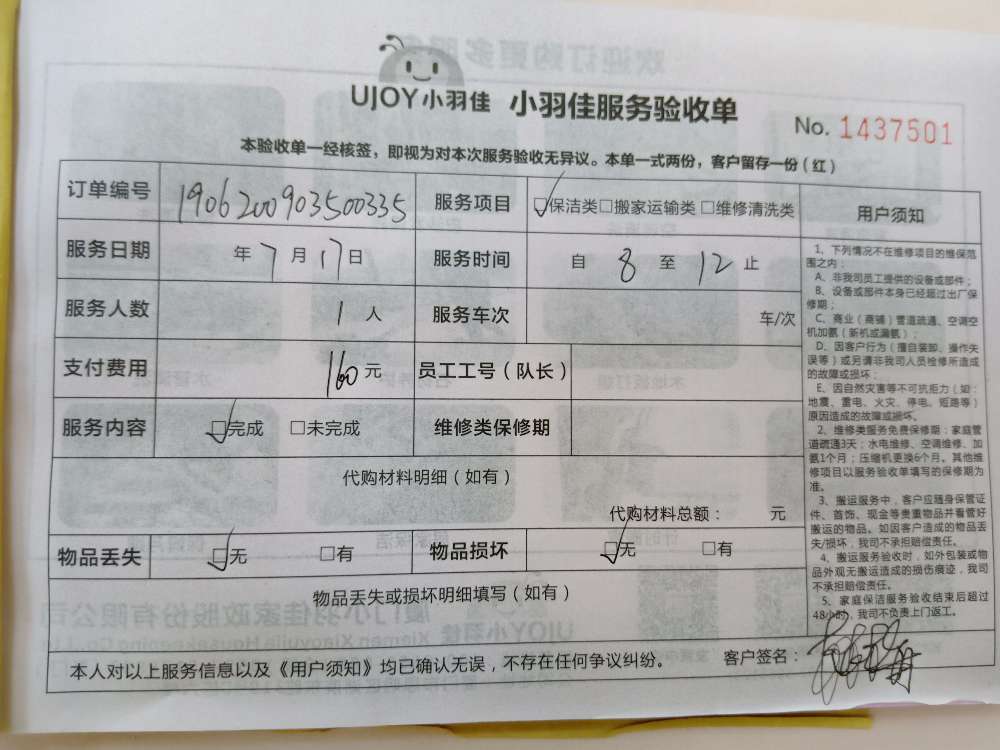 UJOY小羽佳 小羽佳服务验收单
No. 1437501
本验收单一经核签，即视为对本次服务验收无异议。本单一式两份，客户留存一份（红）
订单编号 1906200903500335 服务项目 ☑保洁类 □搬家运输类 □维修清洗类
服务日期 年 7 月 17 日 服务时间 自 8 至 12 止
服务人数 1 人 服务车次 车/次
支付费用 160 元 员工工号（队长）
服务内容 ☑完成 □未完成 维修类保修期
代购材料明细（如有）
代购材料总额： 元
物品丢失 ☑无 □有 物品损坏 ☑无 □有
物品丢失或损坏明细填写（如有）
本人对以上服务信息以及《用户须知》均已确认无误，不存在任何争议纠纷。 客户签名：
用户须知
1、下列情况不在维修项目的维保范围之内：
A、非我司员工提供的设备或部件；
B、设备或部件本身已经超过出厂保修期；
C、商业（商铺）管道疏通、空调空机加氨（新机或漏氨）
D、因客户行为（擅自装卸、操作失误等）或另请非我司人员检修所造成的故障或损坏；
E、因自然灾害等不可抗拒力（如：地震、雷电、火灾、停电、短路等）原因造成的故障或损坏。
2、维修类服务免费保修期：家庭管道疏通3天；水电维修、空调维修、加氨1个月；压缩机更换6个月。其他维修项目以服务验收单填写的保修期为准。
3、搬运服务中，客户应随身保管证件、首饰、现金等贵重物品并看管好搬运的物品。如因客户造成的物品丢失/损坏，我司不承担赔偿责任。
4、搬运服务验收时，如外包装或物品外观无搬运造成的损伤痕迹，我司不承担赔偿责任。
5、家庭保洁服务验收结束后超过48小时，我司不负责上门返工。